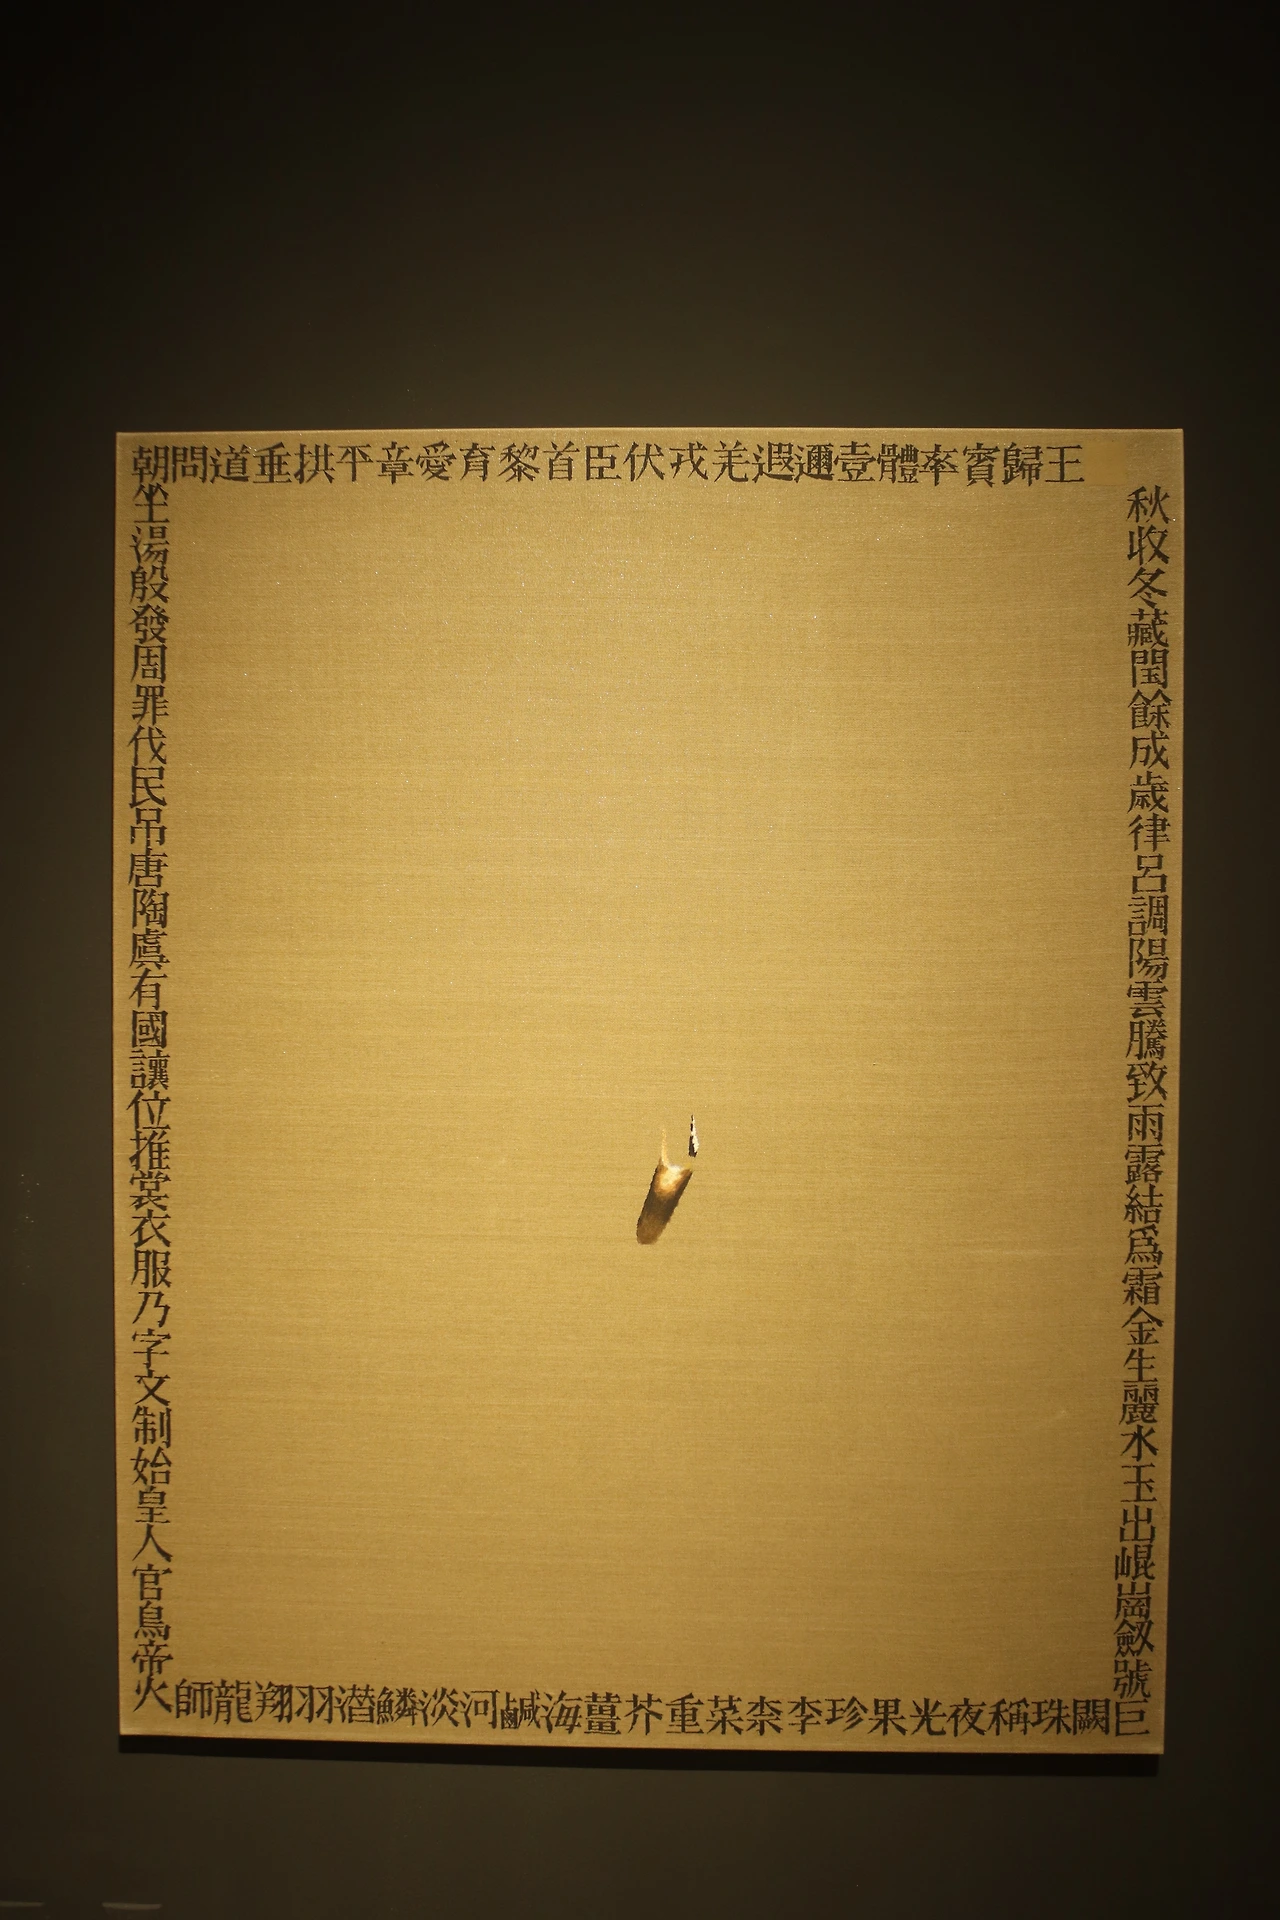 秋收冬藏閏餘成歳律呂調陽雲騰致雨露結爲霜金生麗水玉出崐崗劔號
巨闕珠稱夜光果珍李柰菜重芥薑海鹹河淡鱗潜羽翔龍師
火帝鳥官人皇始制文字乃服衣裳推位讓國有虞陶唐吊民伐罪周發殷湯坐
朝問道垂拱平章愛育黎首臣伏戎羌遐邇壹體率賓歸王